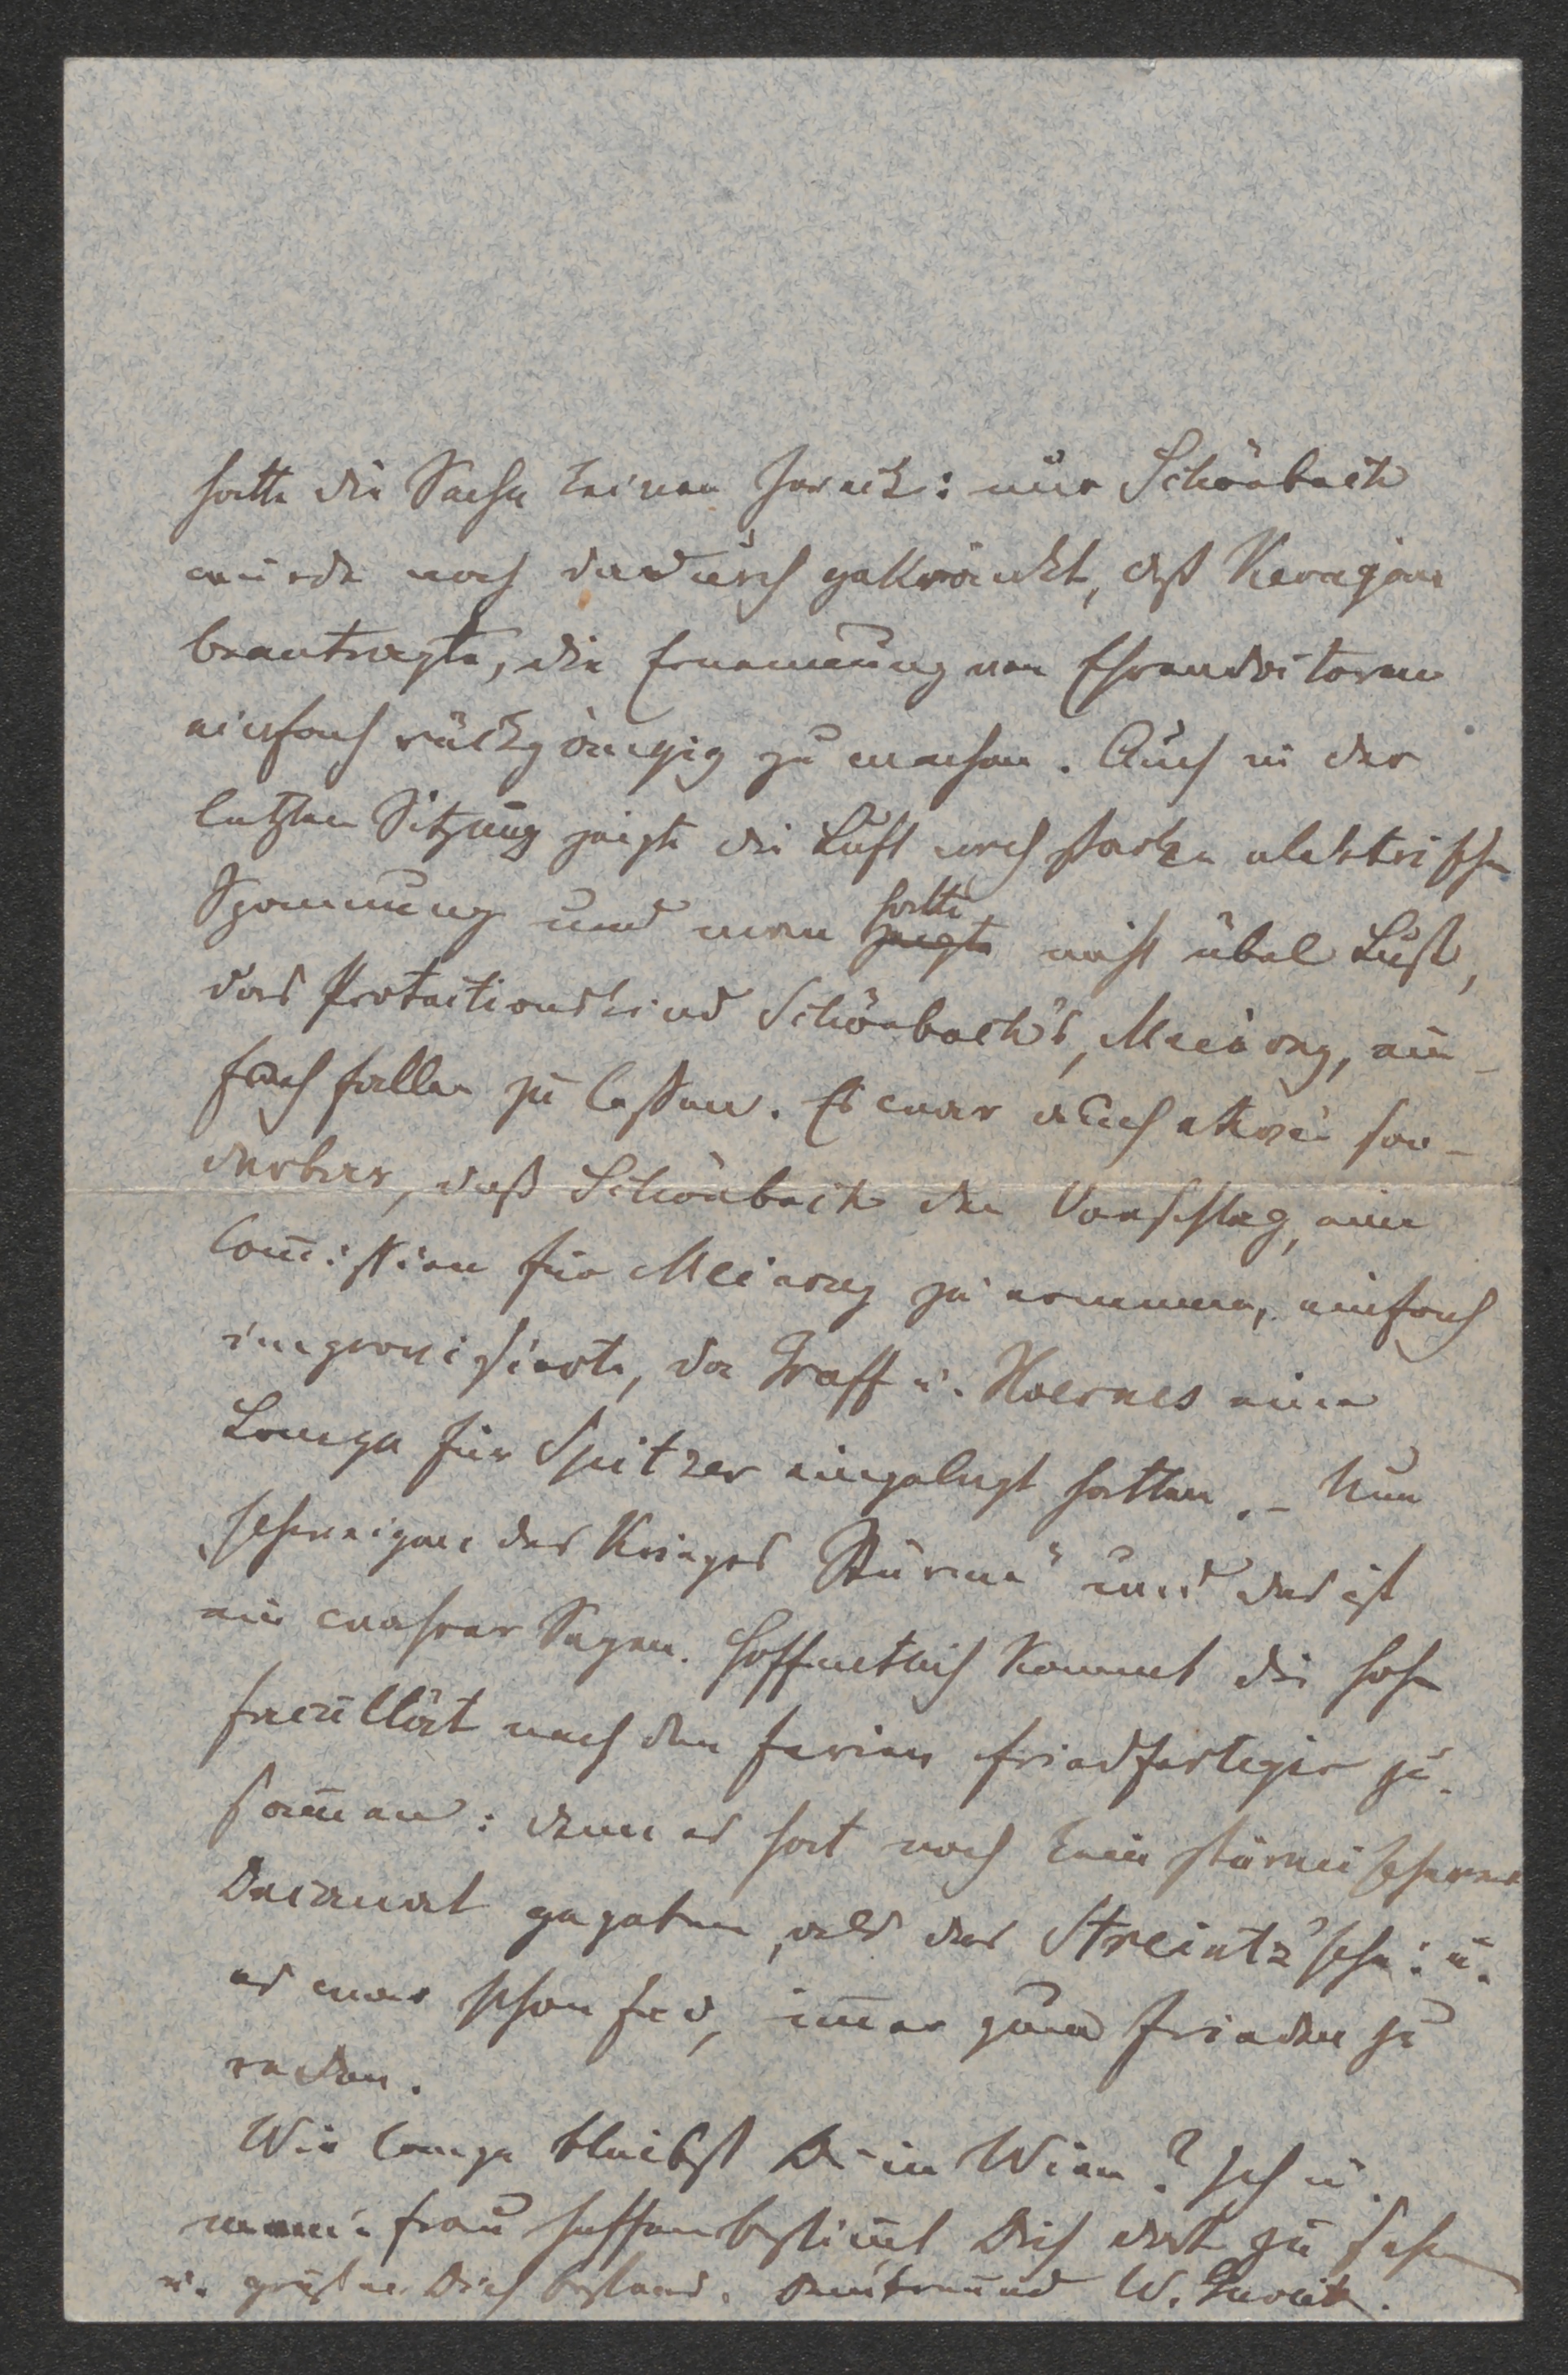 hatte die Sache keinen Zweck: nur Schönbach
wurde noch dadurch gekränkt, daß Karajan
beantragte, die Ernennung von Ehrendoktoren
einfach rückgängig zu machen. Auch in der
letzten Sitzung zeigte die Luft noch starke elektrische
Spannung und man hatte
zeigte nicht übel Lust,
das Protectionskind Schönbach's, Meinong, ein-
fach fallen zu lassen. Es war auch etwas son-
derbar, daß Schönbach den Vorschlag, eine
Com̅ission für Meinong zu ernennen, einfach
improvisierte, da Graff u. Hoernes eine
Lanze für Spitzer eingelegt hatten. – Nun
„schweigen des Krieges Stürme" und das ist
ein wahrer Segen. Hoffentlich kommt die hohe
Facultät nach den Ferien friedfertiger zu-
sam̅en: denn es hat noch kein stürmischeres
Decanat gegeben, als das Streintz'sche: u.
es war schon fad, im̅er zum Frieden zu
reden.
Wie lange bleibst Du in Wien? Ich u.
meine Frau hoffen bestim̅t Dich dort zu sehen
u. grüßen Dich bestens. Dein Freund W. Gurlitt.